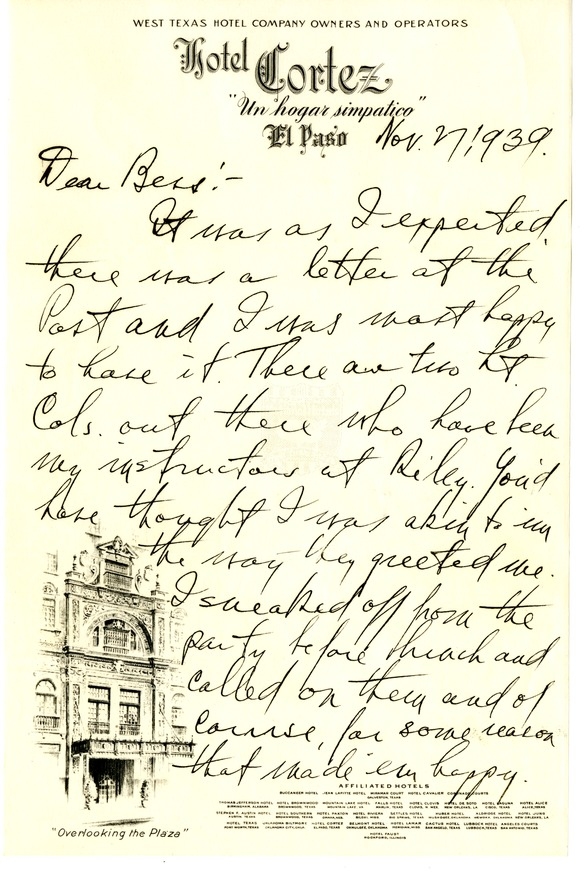 WEST TEXAS HOTEL COMPANY OWNERS AND OPERATORS
Hotel Cortez
"Un hogar simpatico"
El Paso Nov. 27, 1939.
Dear Bess:-
It was as I expected
there was a letter at the
Post and I was most happy
to have it. There are two Lt.
Cols. out there who have been
my instructors at Riley. You'd
have thought I was akin to 'em
the way they greeted me.
I sneaked off from the
party before lunch and
called on them and of
course, for some reason
that made 'em happy.
AFFILIATED HOTELS
"Overlooking the Plaza"